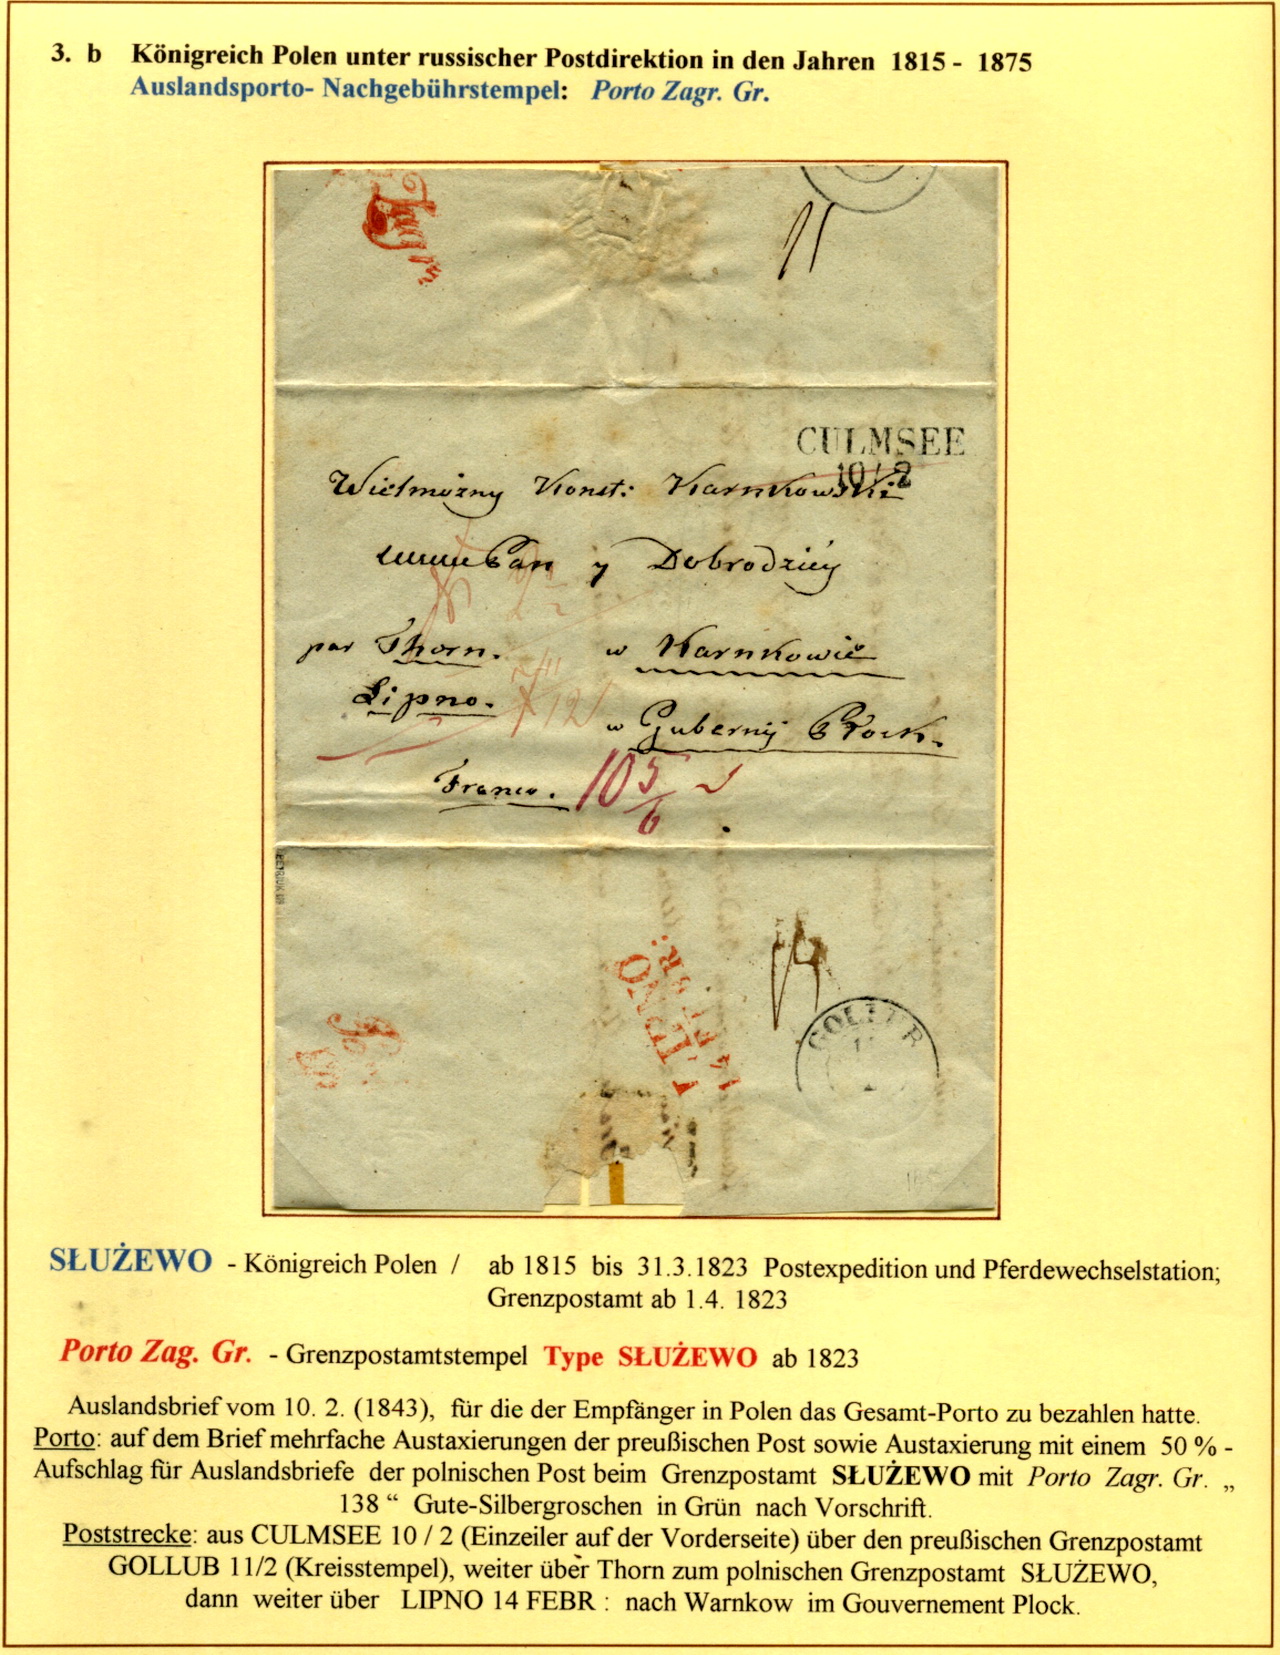 3. b Königreich Polen unter russischer Postdirektion in den Jahren 1815 - 1875
Auslandsporto- Nachgebührstempel: Porto Zagr. Gr.
CULMSEE
10 / 2
Wielmożny Konst: Karnkowski
Pan y Dobrodziéy
par Thorn. w Karnkowie
Lipno.
w Gubernij Płock.
Franco. 10 5/6
LIPNO
14 FEBR.
GOLLUB
SŁUŻEWO - Königreich Polen / ab 1815 bis 31.3.1823 Postexpedition und Pferdewechselstation;
Grenzpostamt ab 1.4. 1823
Porto Zag. Gr. - Grenzpostamtstempel Type SŁUŻEWO ab 1823
Auslandsbrief vom 10. 2. (1843), für die der Empfänger in Polen das Gesamt-Porto zu bezahlen hatte.
Porto: auf dem Brief mehrfache Austaxierungen der preußischen Post sowie Austaxierung mit einem 50 % -
Aufschlag für Auslandsbriefe der polnischen Post beim Grenzpostamt SŁUŻEWO mit Porto Zagr. Gr. „
138 “ Gute-Silbergroschen in Grün nach Vorschrift.
Poststrecke: aus CULMSEE 10 / 2 (Einzeiler auf der Vorderseite) über den preußischen Grenzpostamt
GOLLUB 11/2 (Kreisstempel), weiter über Thorn zum polnischen Grenzpostamt SŁUŻEWO,
dann weiter über LIPNO 14 FEBR : nach Warnkow im Gouvernement Plock.